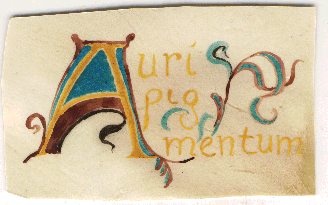 Auri
pig
mentum